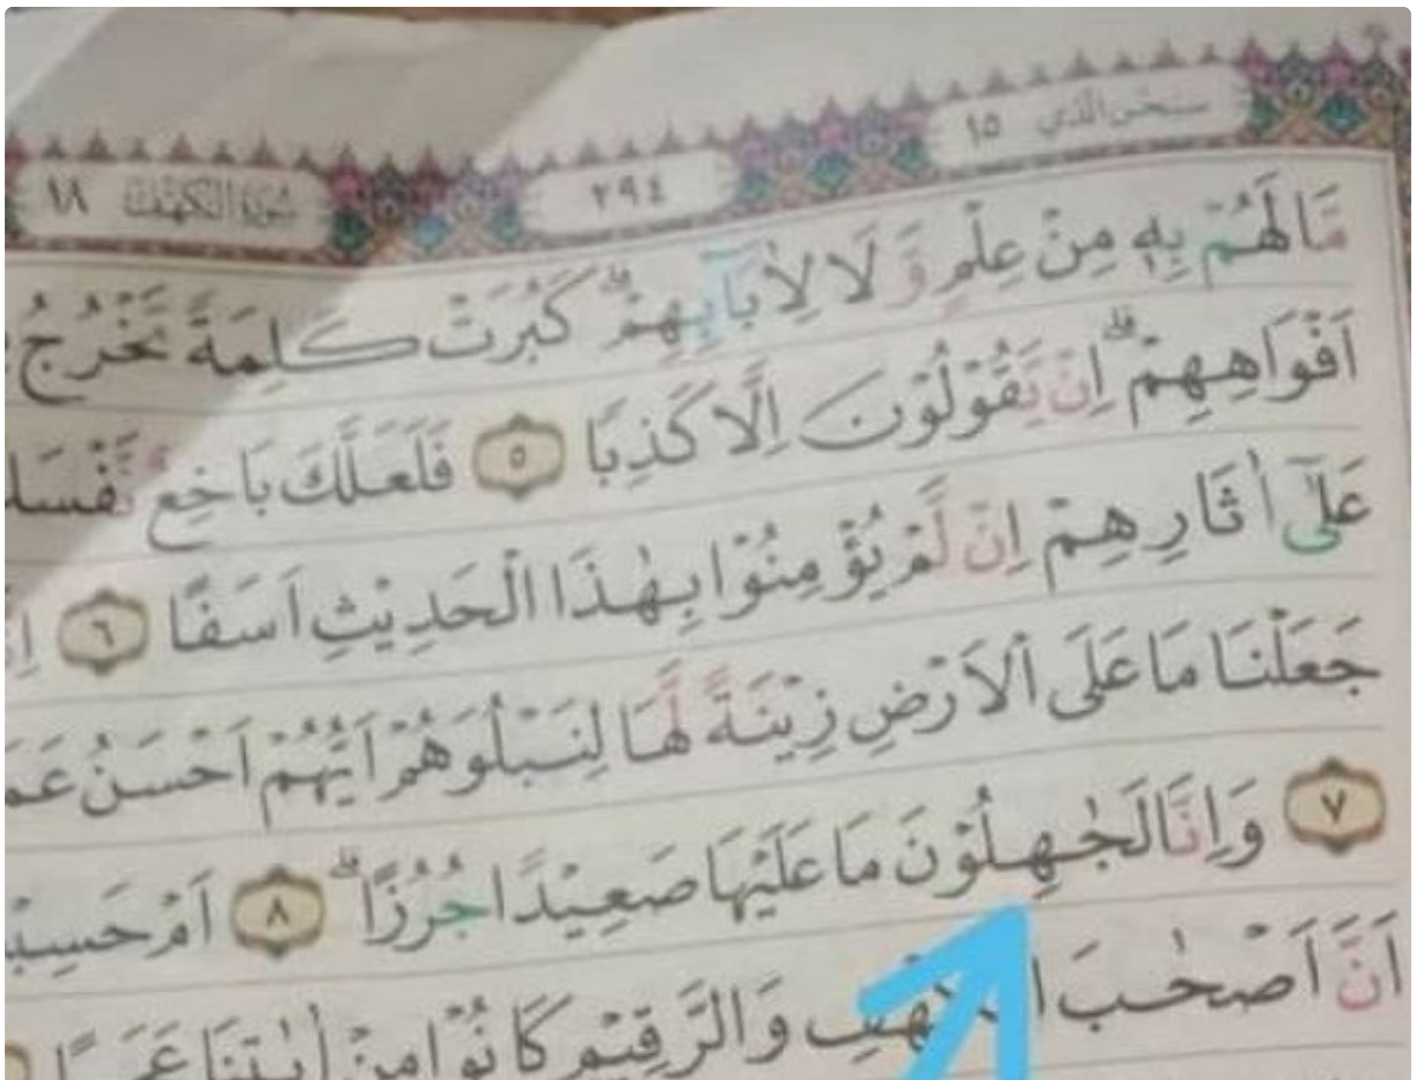 سبحن الذي ١٥
٢٩٤
سورة الكهف ١٨
مَا لَهُمْ بِهٖ مِنْ عِلْمٍ وَّلَا لِاٰبَآىِٕهِمْۗ كَبُرَتْ كَلِمَةً تَخْرُجُ
اَفْوَاهِهِمْۗ اِنْ يَّقُوْلُوْنَ اِلَّا كَذِبًا ٥ فَلَعَلَّكَ بَاخِعٌ
عَلٰٓى اٰثَارِهِمْ اِنْ لَّمْ يُؤْمِنُوْا بِهٰذَا الْحَدِيْثِ اَسَفًا ٦
جَعَلْنَا مَا عَلَى الْاَرْضِ زِيْنَةً لَّهَا لِنَبْلُوَهُمْ اَيُّهُمْ اَحْسَنُ
٧ وَاِنَّا لَجٰهِلُوْنَ مَا عَلَيْهَا صَعِيْدًا جُرُزًاۗ ٨ اَمْ
اَنَّ اَصْحٰبَ وَالرَّقِيْمِ كَانُوْا مِنْ اٰيٰتِنَا